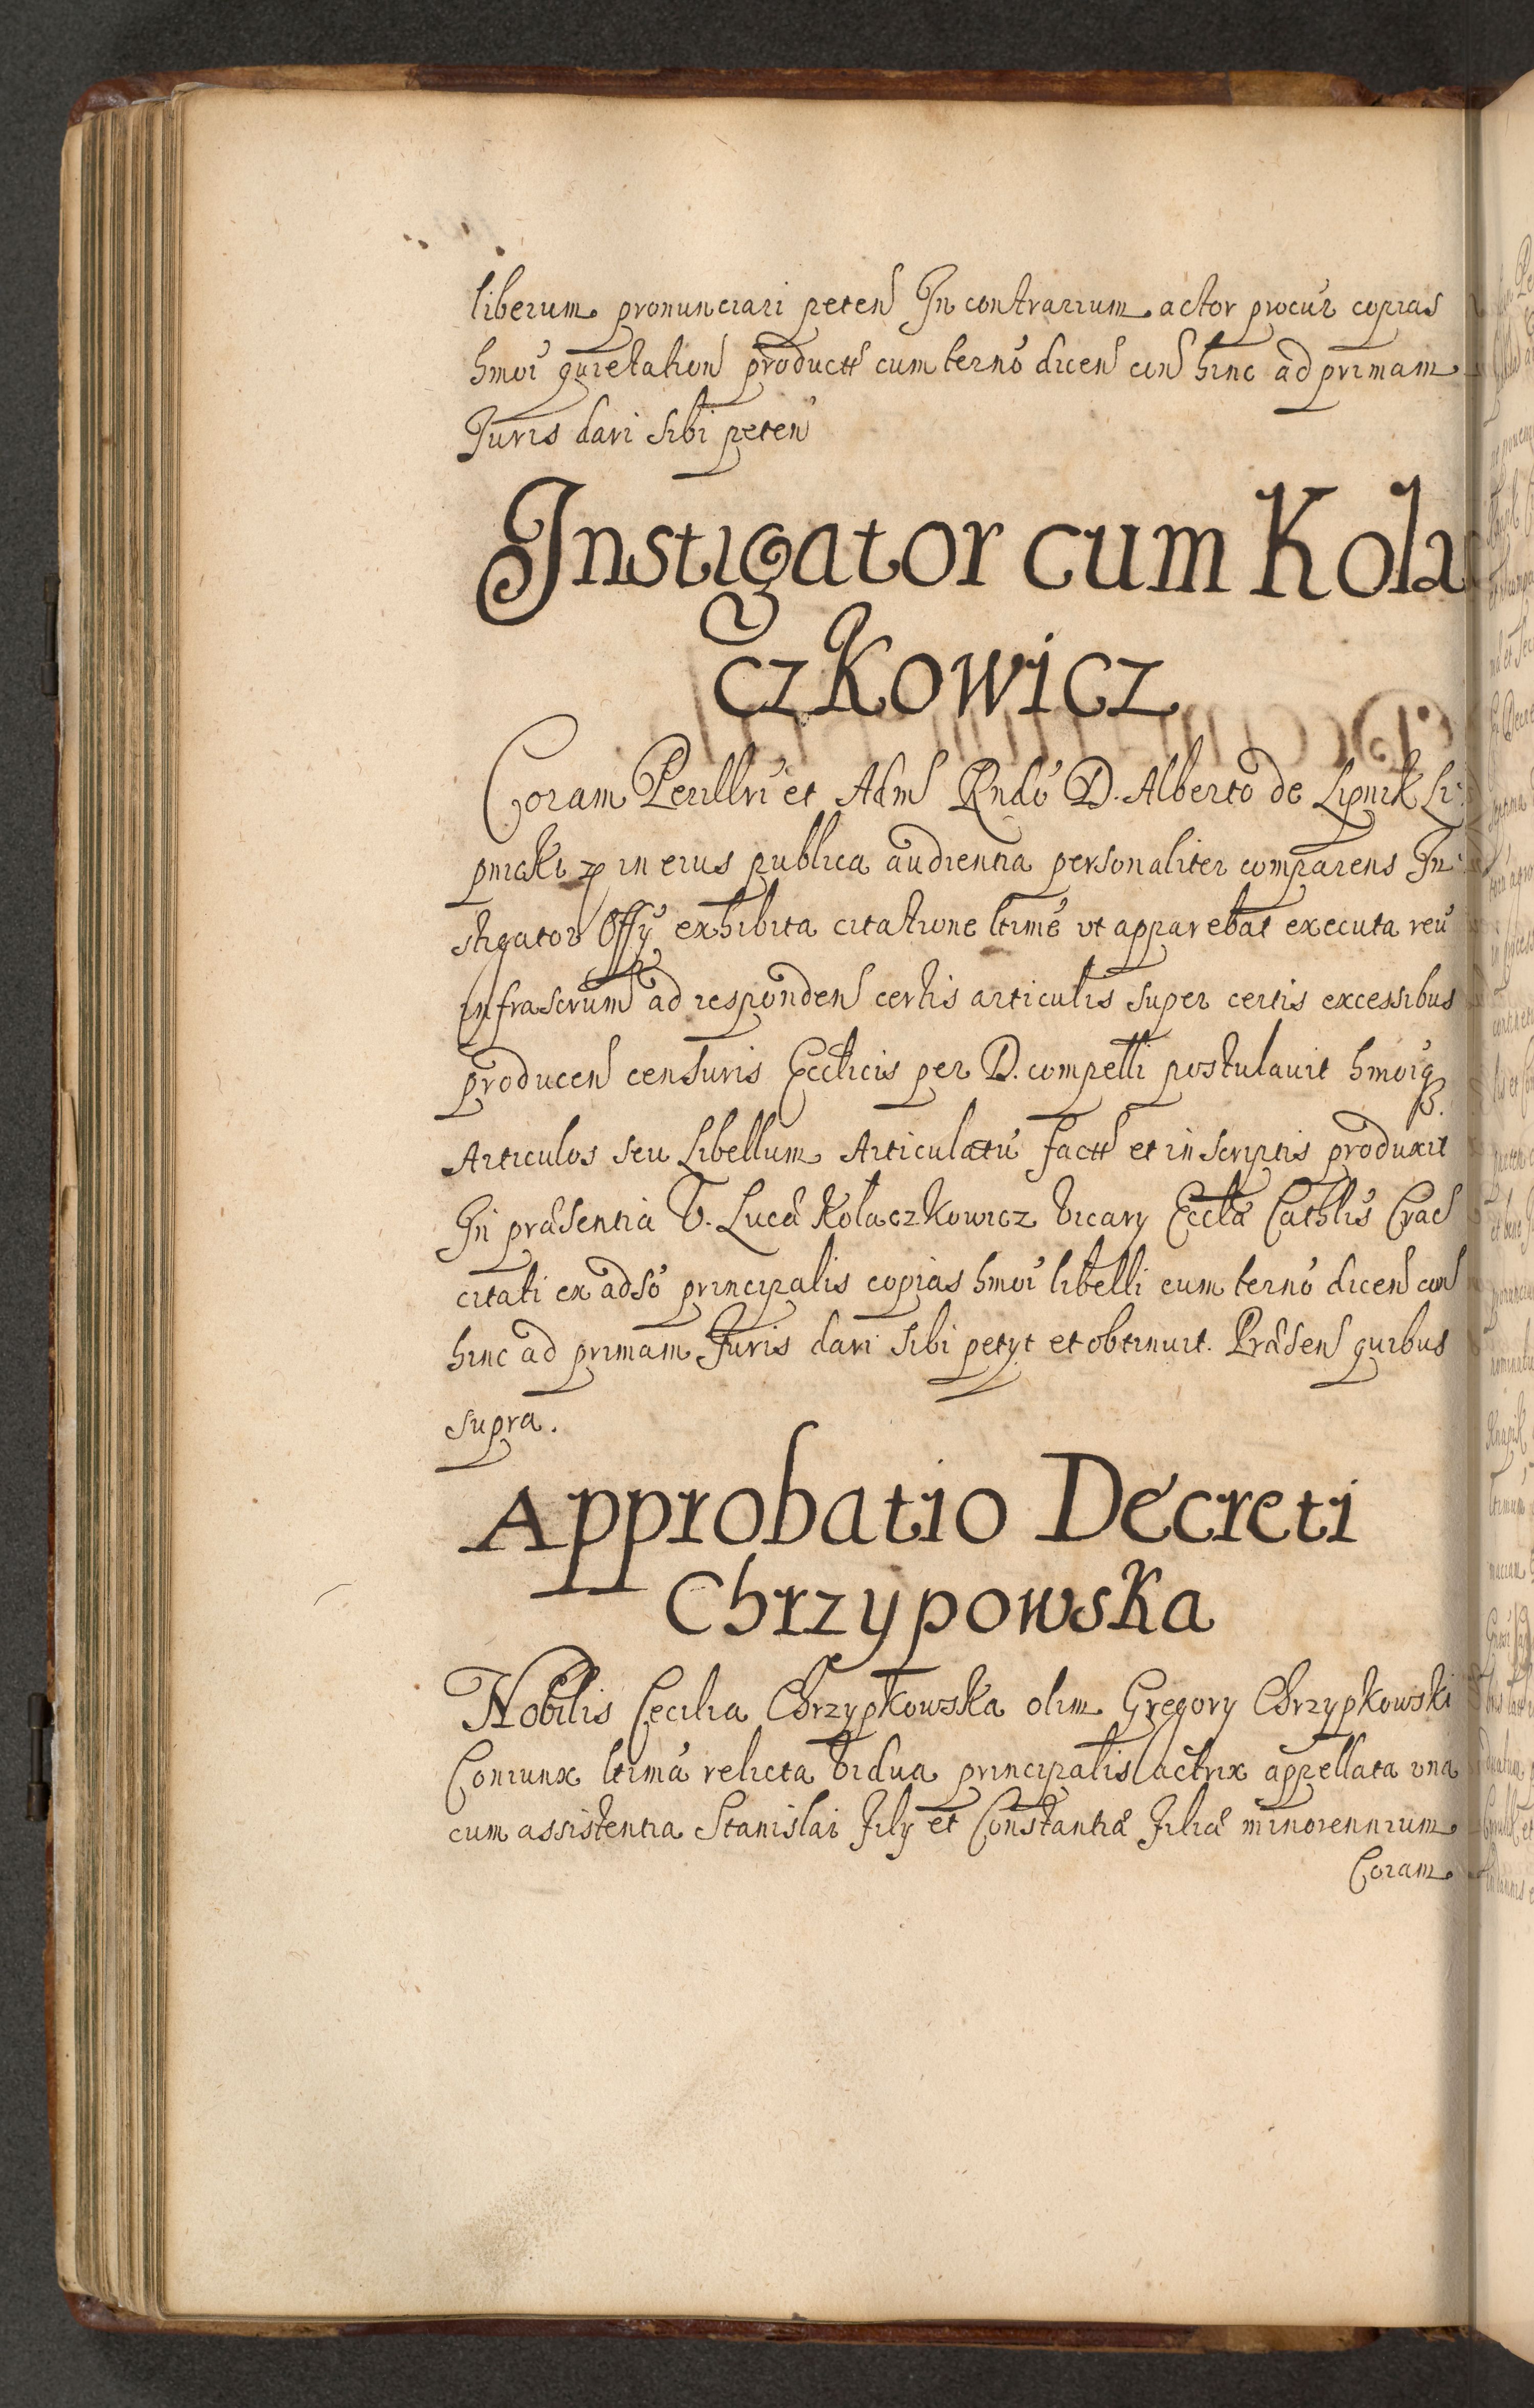 liberum pronunciari peten In contrarium actor procur copias
hmoi quietation product cum termo dicen con hinc ad primam
Juris dari sibi peten
Instigator cum Kola
czkowicz
Coram Perillri et Adm Rndo D. Alberto de Lipnik Li:
pnicki in eius publica audientia personaliter comparens In:
stigator Offy exhibita citatione ltime ut apparebat executa reu
infrascrum ad responden certis articulis super certis excessibus
producen censuris Ecclicis per D. compelli postulavit hmoiq
Articulos seu Libellum Articulatu fact et in scriptis produxit
In præsentia V. Lucæ Kolaczkowicz Vicary Eccla Cathlis Crac
citati ex adso principalis copias hmoi libelli cum termo dicen con
hinc ad primam Juris dari sibi petyt et obtinuit. Præsen quibus
supra.
Approbatio Decreti
Chrzypowska
Nobilis Cecilia Chrzypkowska olim Gregory Chrzypkowski
Coniunx ltima relicta vidua principalis actrix appellata una
cum assistentia Stanislai Fily et Constantiæ Filiæ minorennium
Coram